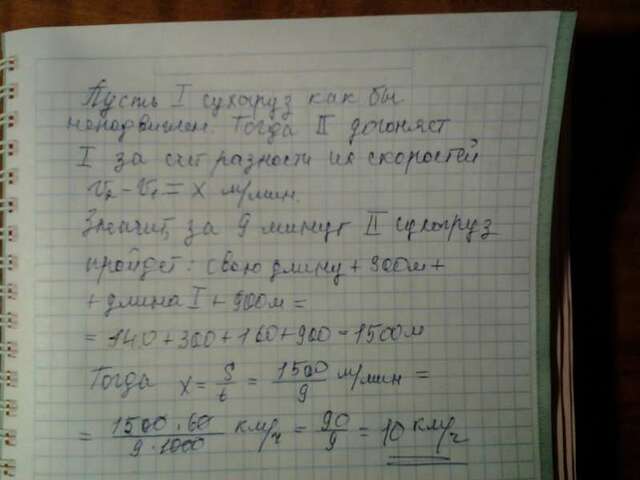 Пусть I сухогруз как бы
неподвижен. Тогда II догоняет
I за счёт разности их скоростей
V₂ - V₁ = x м/мин.
Значит, за 9 минут II сухогруз
пройдет: свою длину + 300м +
+ длина I + 900м =
= 140 + 300 + 160 + 900 = 1500м
Тогда x = S/t = 1500/9 м/мин =
= 1500·60/9·1000 км/ч = 90/9 = 10 км/ч